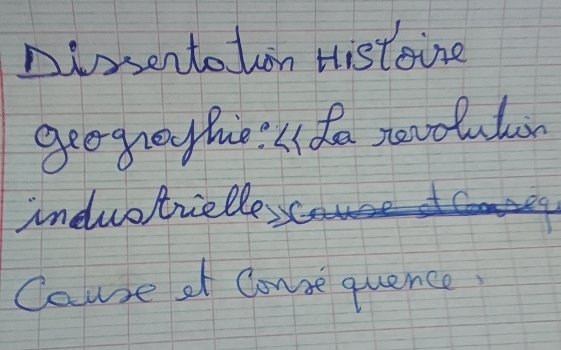 Dissertation Histoire
geographie: << La revolution
industrielle >> cause et Conséq
Cause et Conséquence.